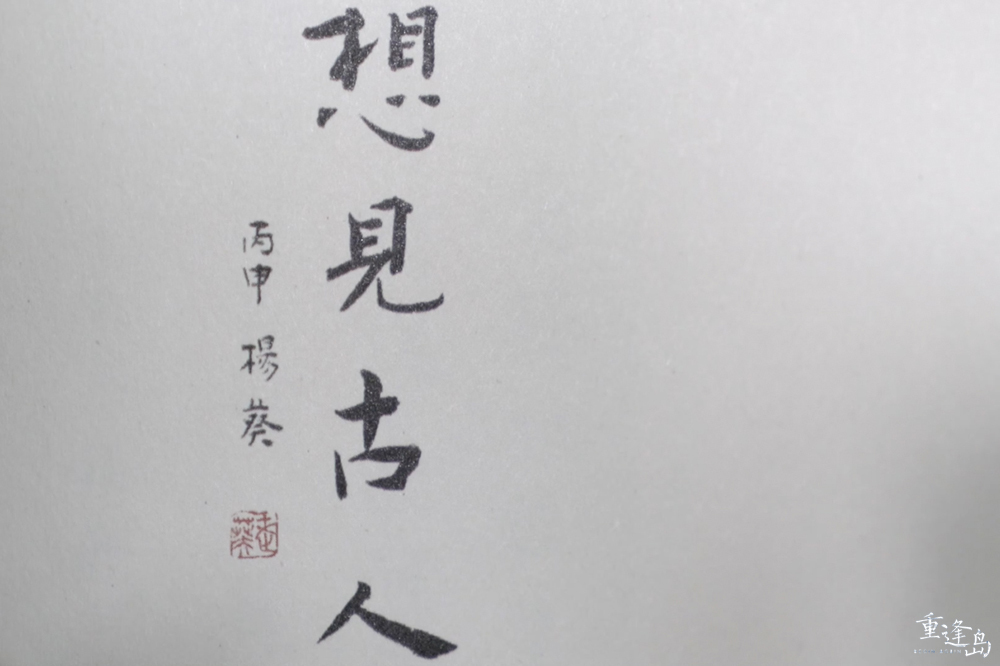 想見古人
丙申 楊葵
重逢島